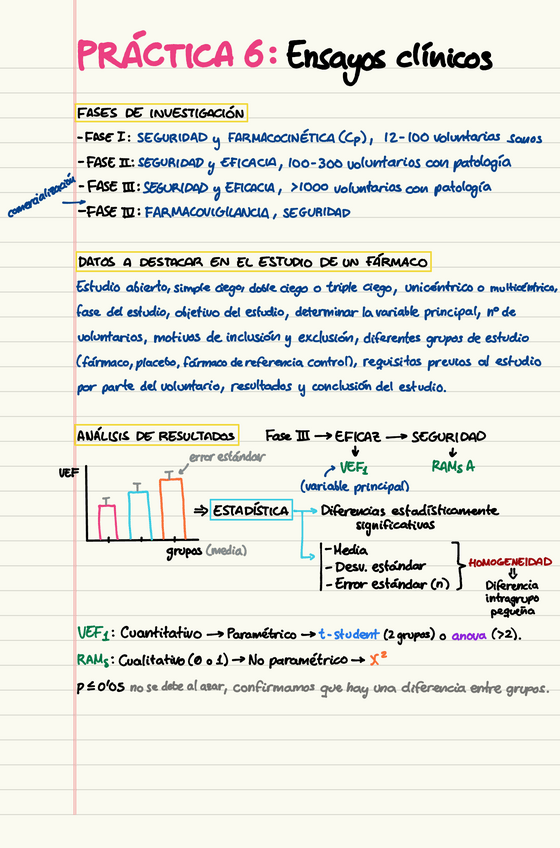 PRÁCTICA 6: Ensayos clínicos
FASES DE INVESTIGACIÓN
-FASE I: SEGURIDAD y FARMACOCINÉTICA (Cp), 12-100 voluntarios sanos
-FASE II: SEGURIDAD y EFICACIA, 100-300 voluntarios con patología
-FASE III: SEGURIDAD y EFICACIA, >1000 voluntarios con patología
comercialización
-FASE IV: FARMACOVIGILANCIA, SEGURIDAD
DATOS A DESTACAR EN EL ESTUDIO DE UN FÁRMACO
Estudio abierto, simple ciego, doble ciego o triple ciego, unicéntrico o multicéntrico,
fase del estudio, objetivo del estudio, determinar la variable principal, nº de
voluntarios, motivos de inclusión y exclusión, diferentes grupos de estudio
(fármaco, placebo, fármaco de referencia control), requisitos previos al estudio
por parte del voluntario, resultados y conclusión del estudio.
ANÁLISIS DE RESULTADOS
Fase III → EFICAZ → SEGURIDAD
error estándar
VEF
VEF₁
RAMs A
(variable principal)
⇒ ESTADÍSTICA
Diferencias estadísticamente
significativas
grupos (media)
-Media
-Desv. estándar
-Error estándar (n)
HOMOGENEIDAD
Diferencia
intragrupo
pequeña
VEF₁: Cuantitativo → Paramétrico → t-student (2 grupos) o anova (>2).
RAMs: Cualitativo (0 o 1) → No paramétrico → X²
p≤0'05 no se debe al azar, confirmamos que hay una diferencia entre grupos.